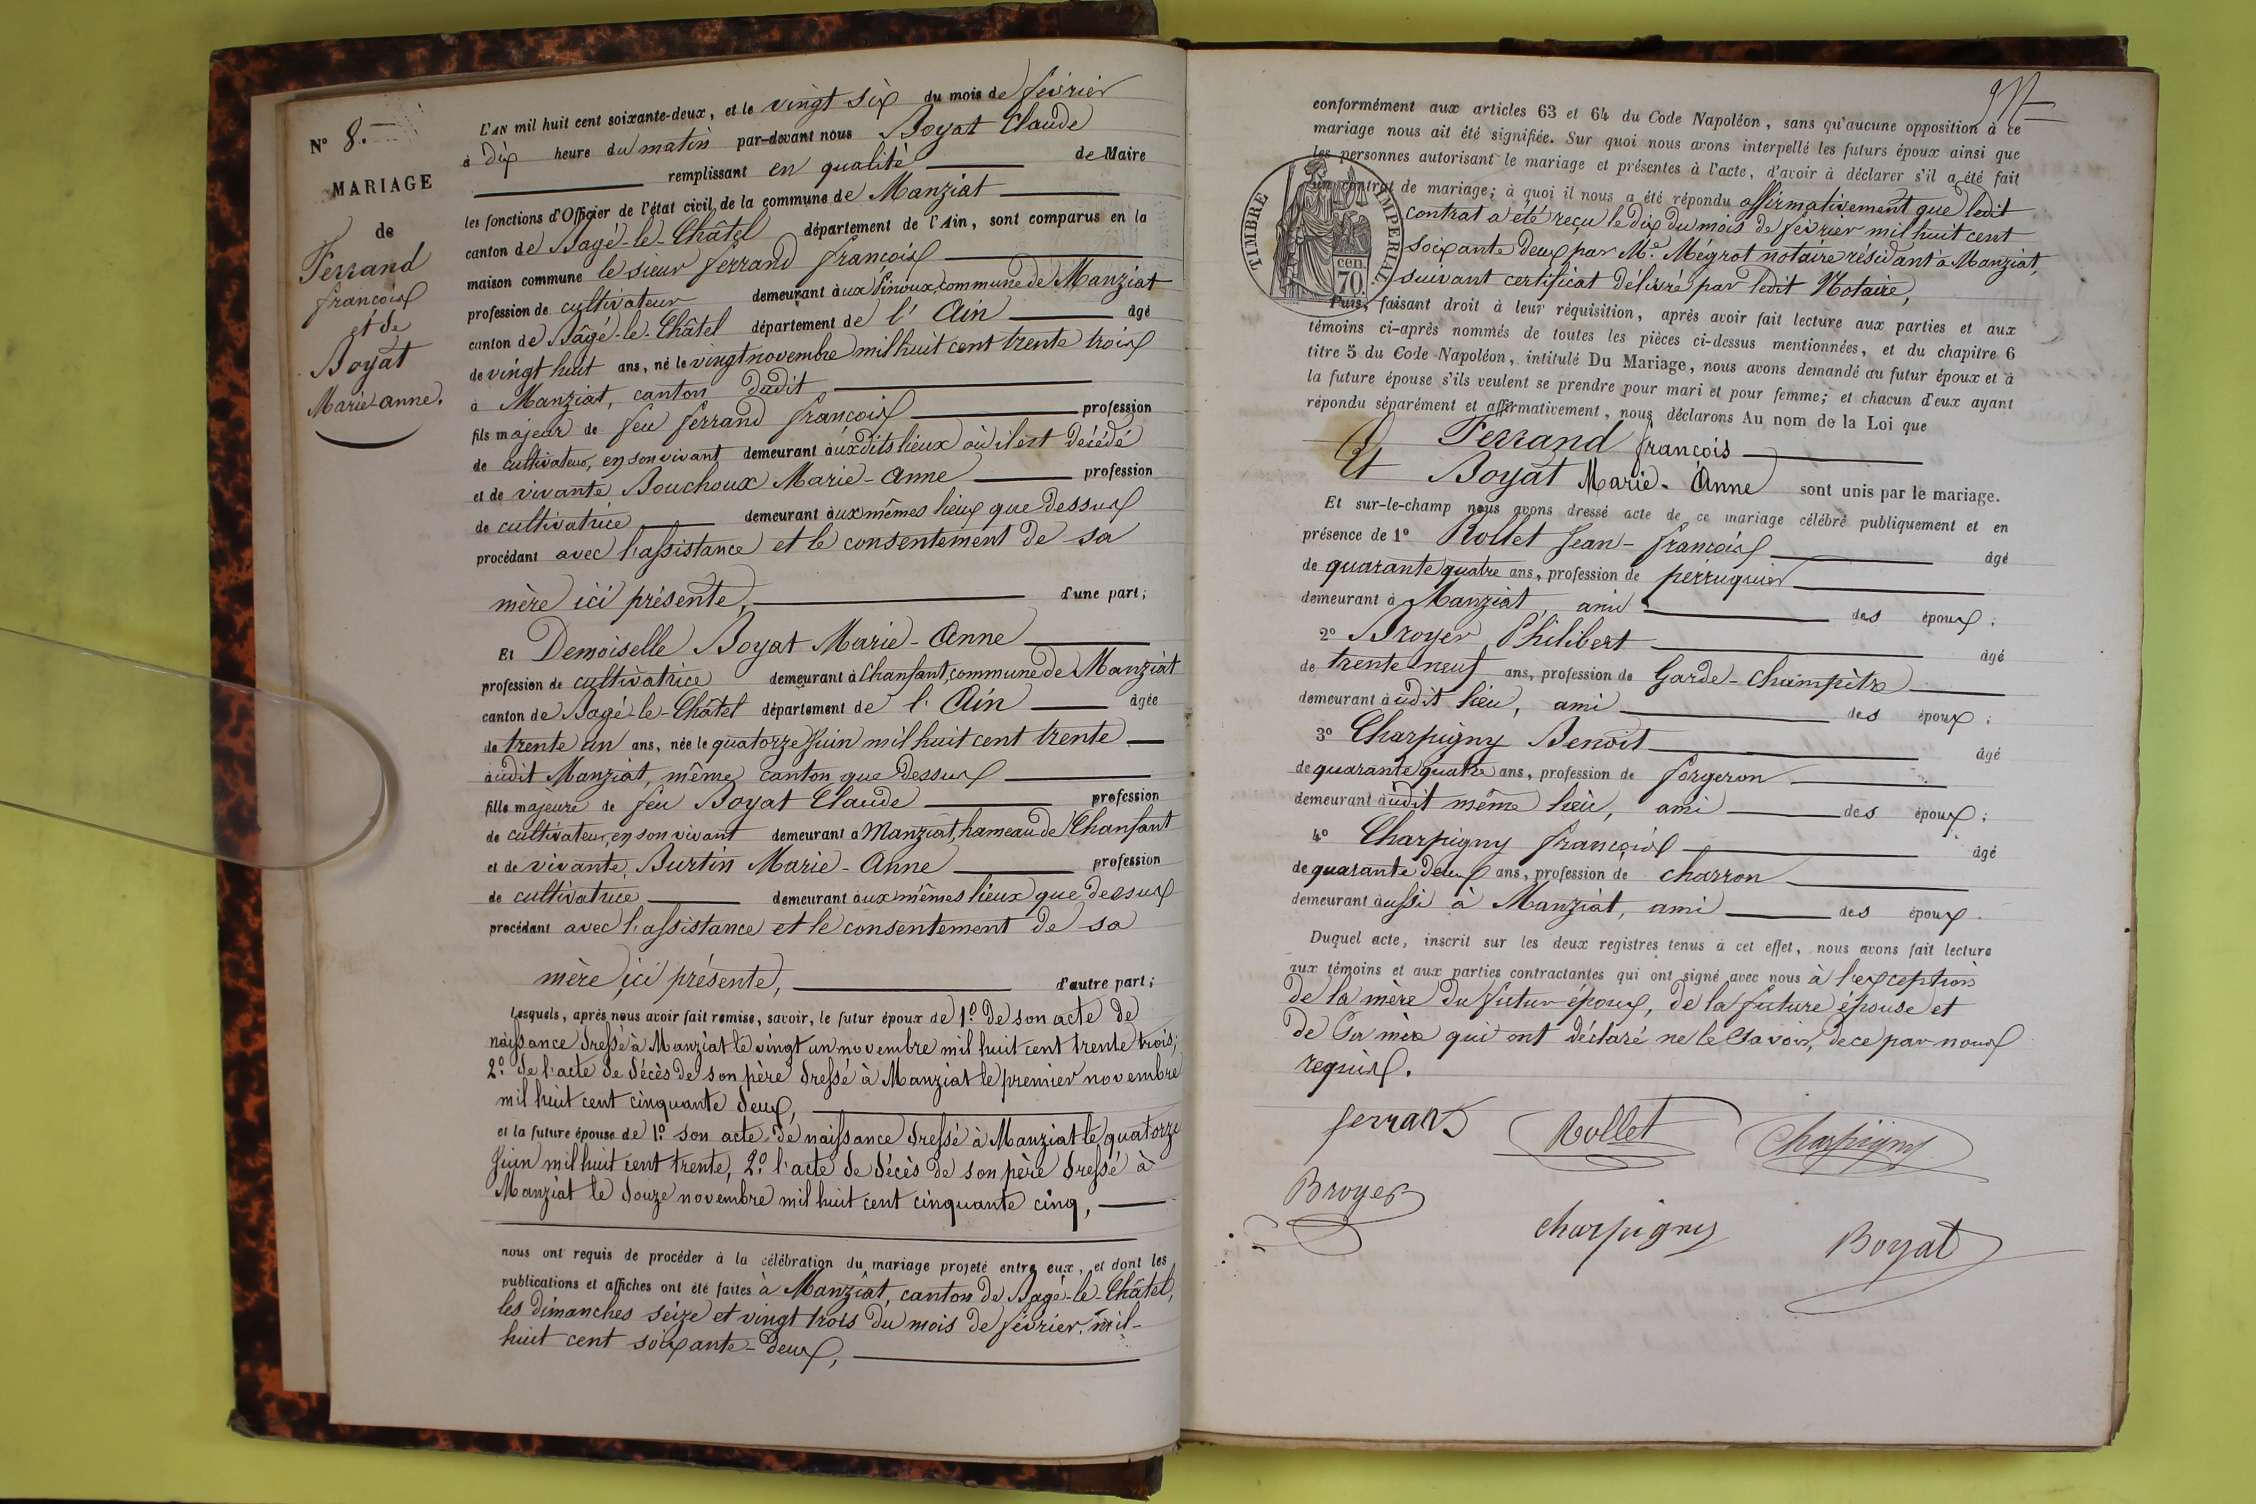 N° 8.
MARIAGE
de
Ferrand
françois
et de
Boyat
Marie-anne.
L'AN mil huit cent soixante-deux, et le vingt six du mois de février
à dix heure du matin par-devant nous Boyat Claude
remplissant en qualité de Maire
les fonctions d'Officier de l'état civil de la commune de Manziat
canton de Bagé-le-Châtel département de l'Ain, sont comparus en la
maison commune le sieur ferrand françois
profession de cultivateur demeurant aux commune de Manziat
canton de Bâgé-le-Châtel département de l'Ain âgé
de vingt huit ans, né le vingt novembre mil huit cent trente trois
à Manziat, canton dudit
fils majeur de feu ferrand françois profession
de cultivateur, en son vivant demeurant auxdits lieux où il est décédé
et de vivante Bouchoux Marie-Anne profession
de cultivatrice demeurant aux mêmes lieux que dessus
procédant avec l'assistance et le consentement de sa
mère ici présente, d'une part;
Et Demoiselle Boyat Marie-Anne
profession de cultivatrice demeurant à Chanfant, commune de Manziat
canton de Bagé-le-Châtel département de l'Ain âgée
de trente un ans, née le quatorze Juin mil huit cent trente
audit Manziat, même canton que dessus
fille majeure de feu Boyat Claude profession
de cultivateur, en son vivant demeurant a Manziat, hameau de Chanfant
et de vivante, Burtin Marie-Anne profession
de cultivatrice demeurant aux mêmes lieux que dessus
procédant avec l'assistance et le consentement de sa
mère ici présente, d'autre part;
Lesquels, après nous avoir fait remise, savoir, le futur époux de 1° de son acte de
naissance dressé à Manziat le vingt un novembre mil huit cent trente trois;
2° de l'acte de décès de son père dressé à Manziat le premier novembre
mil huit cent cinquante deux,
et la future épouse de 1° son acte de naissance dressé à Manziat le quatorze
Juin mil huit cent trente, 2° l'acte de décès de son père dressé à
Manziat le douze novembre mil huit cent cinquante cinq,
nous ont requis de procéder à la célébration du mariage projeté entre eux, et dont les
publications et affiches ont été faites à Manziat, canton de Bagé-le-Châtel,
les dimanches seize et vingt trois du mois de février, mil-
huit cent soixante-deux,
conformément aux articles 63 et 64 du Code Napoléon, sans qu'aucune opposition à ce
mariage nous ait été signifiée. Sur quoi nous avons interpellé les futurs époux ainsi que
les personnes autorisant le mariage et présentes à l'acte, d'avoir à déclarer s'il a été fait
un contrat de mariage; à quoi il nous a été répondu affirmativement que ledit
contrat a été reçu le dix du mois de février mil huit cent
soixante deux par Me. Mégrot notaire résidant à Manziat,
suivant certificat délivré par ledit Notaire,
TIMBRE IMPERIAL
cen
70.
Puis, faisant droit à leur réquisition, après avoir fait lecture aux parties et aux
témoins ci-après nommés de toutes les pièces ci-dessus mentionnées, et du chapitre 6
titre 5 du Code Napoléon, intitulé Du Mariage, nous avons demandé au futur époux et à
la future épouse s'ils veulent se prendre pour mari et pour femme; et chacun d'eux ayant
répondu séparément et affirmativement, nous déclarons Au nom de la Loi que
Ferrand françois
Et Boyat Marie-Anne sont unis par le mariage.
Et sur-le-champ nous avons dressé acte de ce mariage célébré publiquement et en
présence de 1° Rollet Jean-françois âgé
de quarante quatre ans, profession de perruquier
demeurant à Manziat, ami des époux;
2° Broyer Philibert âgé
de trente neuf ans, profession de Garde-Champêtre
demeurant audit lieu, ami des époux;
3° Charpigny Benoit âgé
de quarante quatre ans, profession de forgeron
demeurant audit même lieu, ami des époux;
4° Charpigny françois âgé
de quarante deux ans, profession de charron
demeurant aussi à Manziat, ami des époux.
Duquel acte, inscrit sur les deux registres tenus à cet effet, nous avons fait lecture
aux témoins et aux parties contractantes qui ont signé avec nous à l'exception
de la mère du futur époux, de la future épouse et
de sa mère qui ont déclaré ne le savoir, de ce par nous
requis.
ferrand Rollet Charpigny
Broyer charpigny Boyat